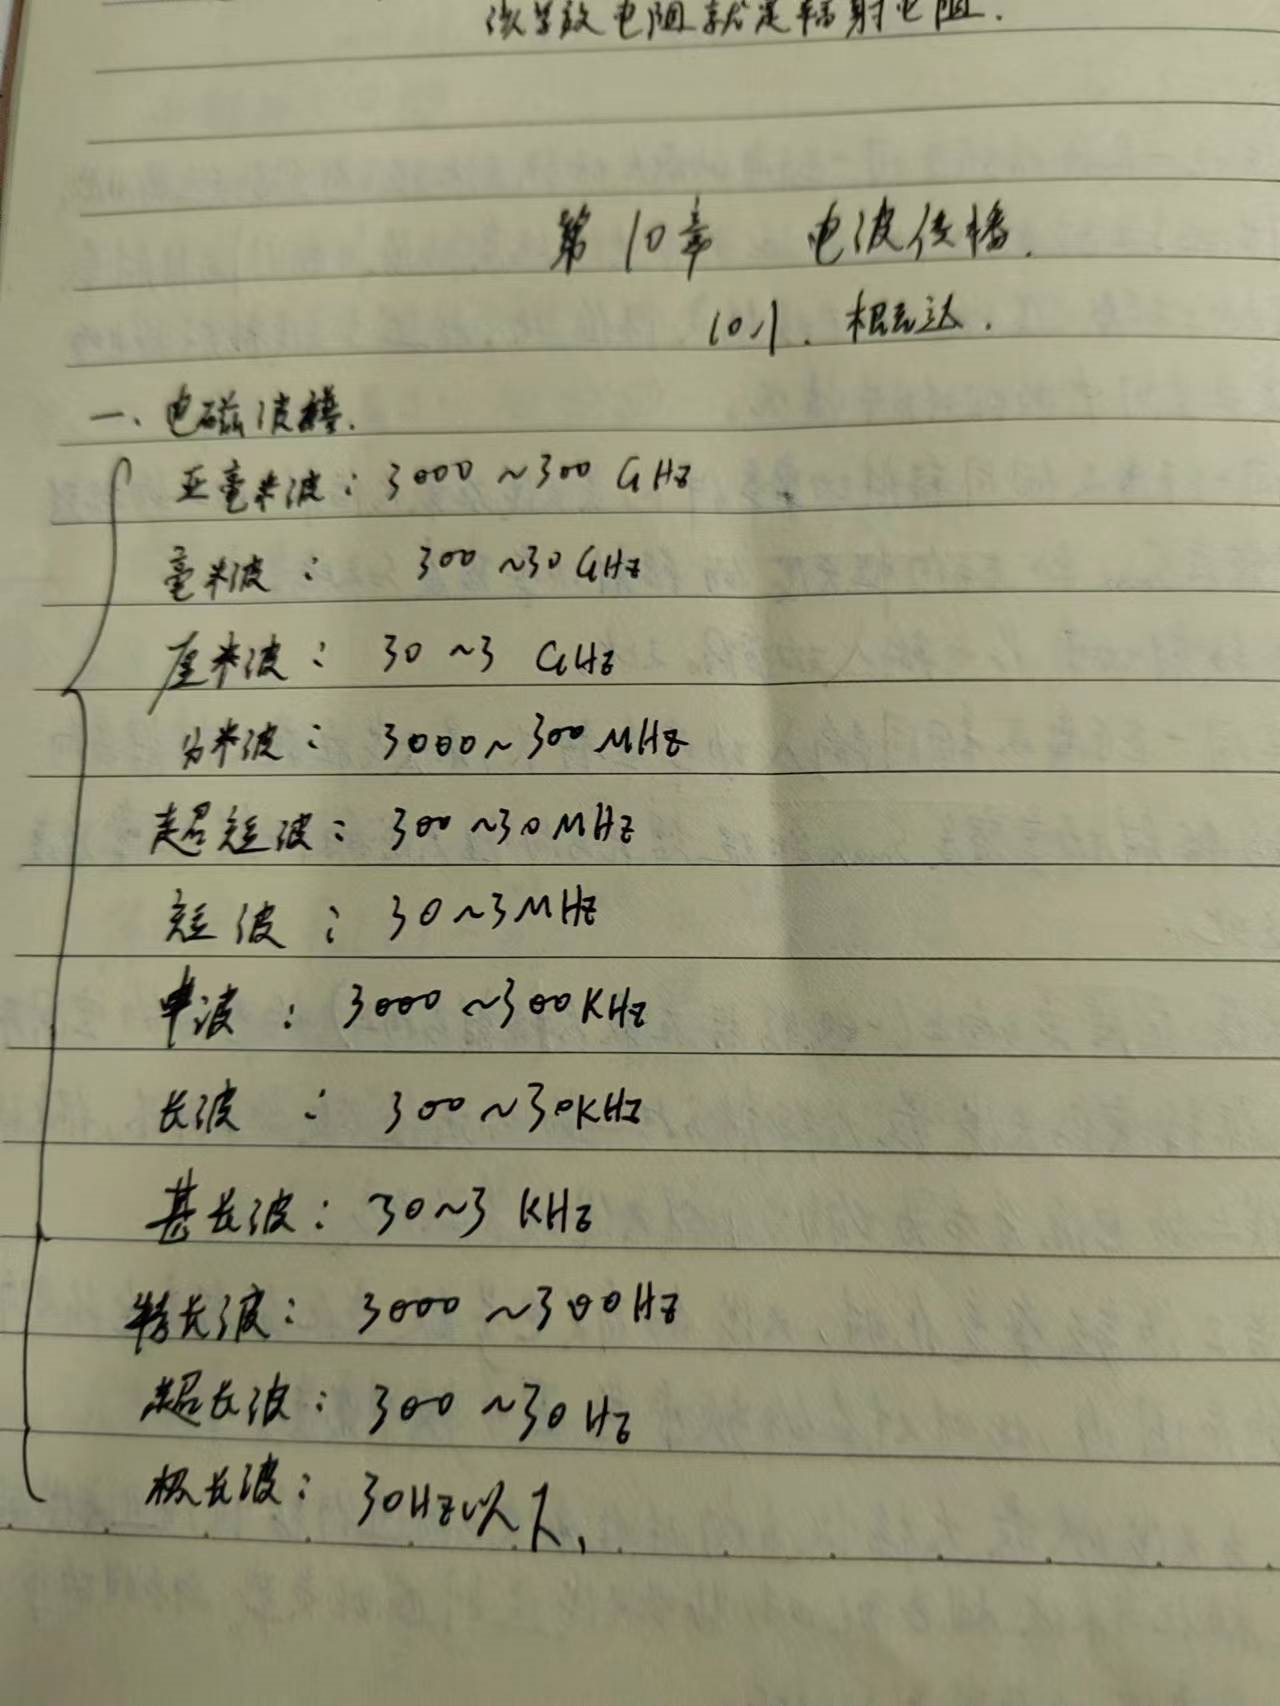 电阻就是辐射电阻.
第10章 电波传播.
10.1. 概述.
一、电磁波谱.
亚毫米波: 3000~300 GHz
毫米波: 300~30GHz
厘米波: 30~3 GHz
分米波: 3000~300MHz
超短波: 300~30MHz
短波: 30~3MHz
中波: 3000~300KHz
长波: 300~30KHz
甚长波: 30~3 KHz
特长波: 3000~300Hz
超长波: 300~30Hz
极长波: 30Hz以下.